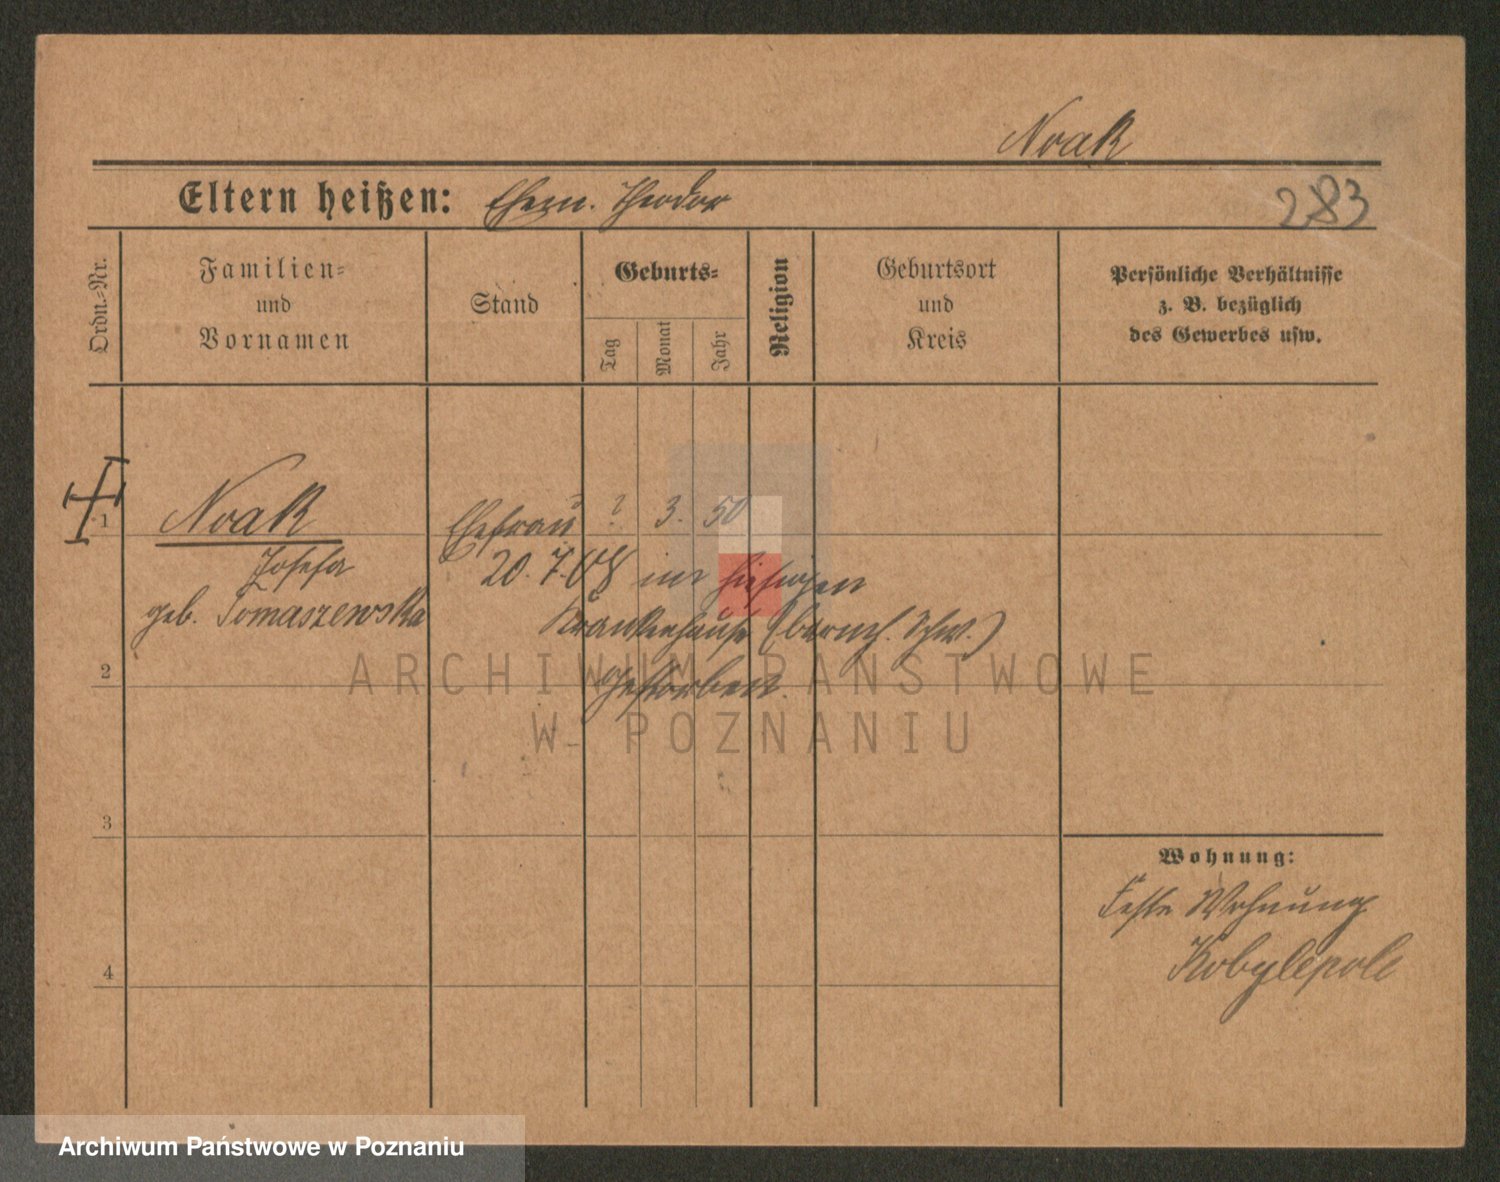 Noak
Eltern heißen: Ehem. Theodor
283
Ordn.-Nr.
Familien-
und
Vornamen
Stand
Geburts-
Tag
Monat
Jahr
Religion
Geburtsort
und
Kreis
Persönliche Verhältnisse
z. B. bezüglich
des Gewerbes usw.
1 Noak Ehefrau ? 3. 50
Josefa 20.7.08 im hiesigen
geb. Tomaszewska Krankenhause (barmh. Schw.)
gestorben.
2
ARCHIWUM PAŃSTWOWE
W POZNANIU
3
Wohnung:
Feste Wohnung
Kobylepole
4
Archiwum Państwowe w Poznaniu